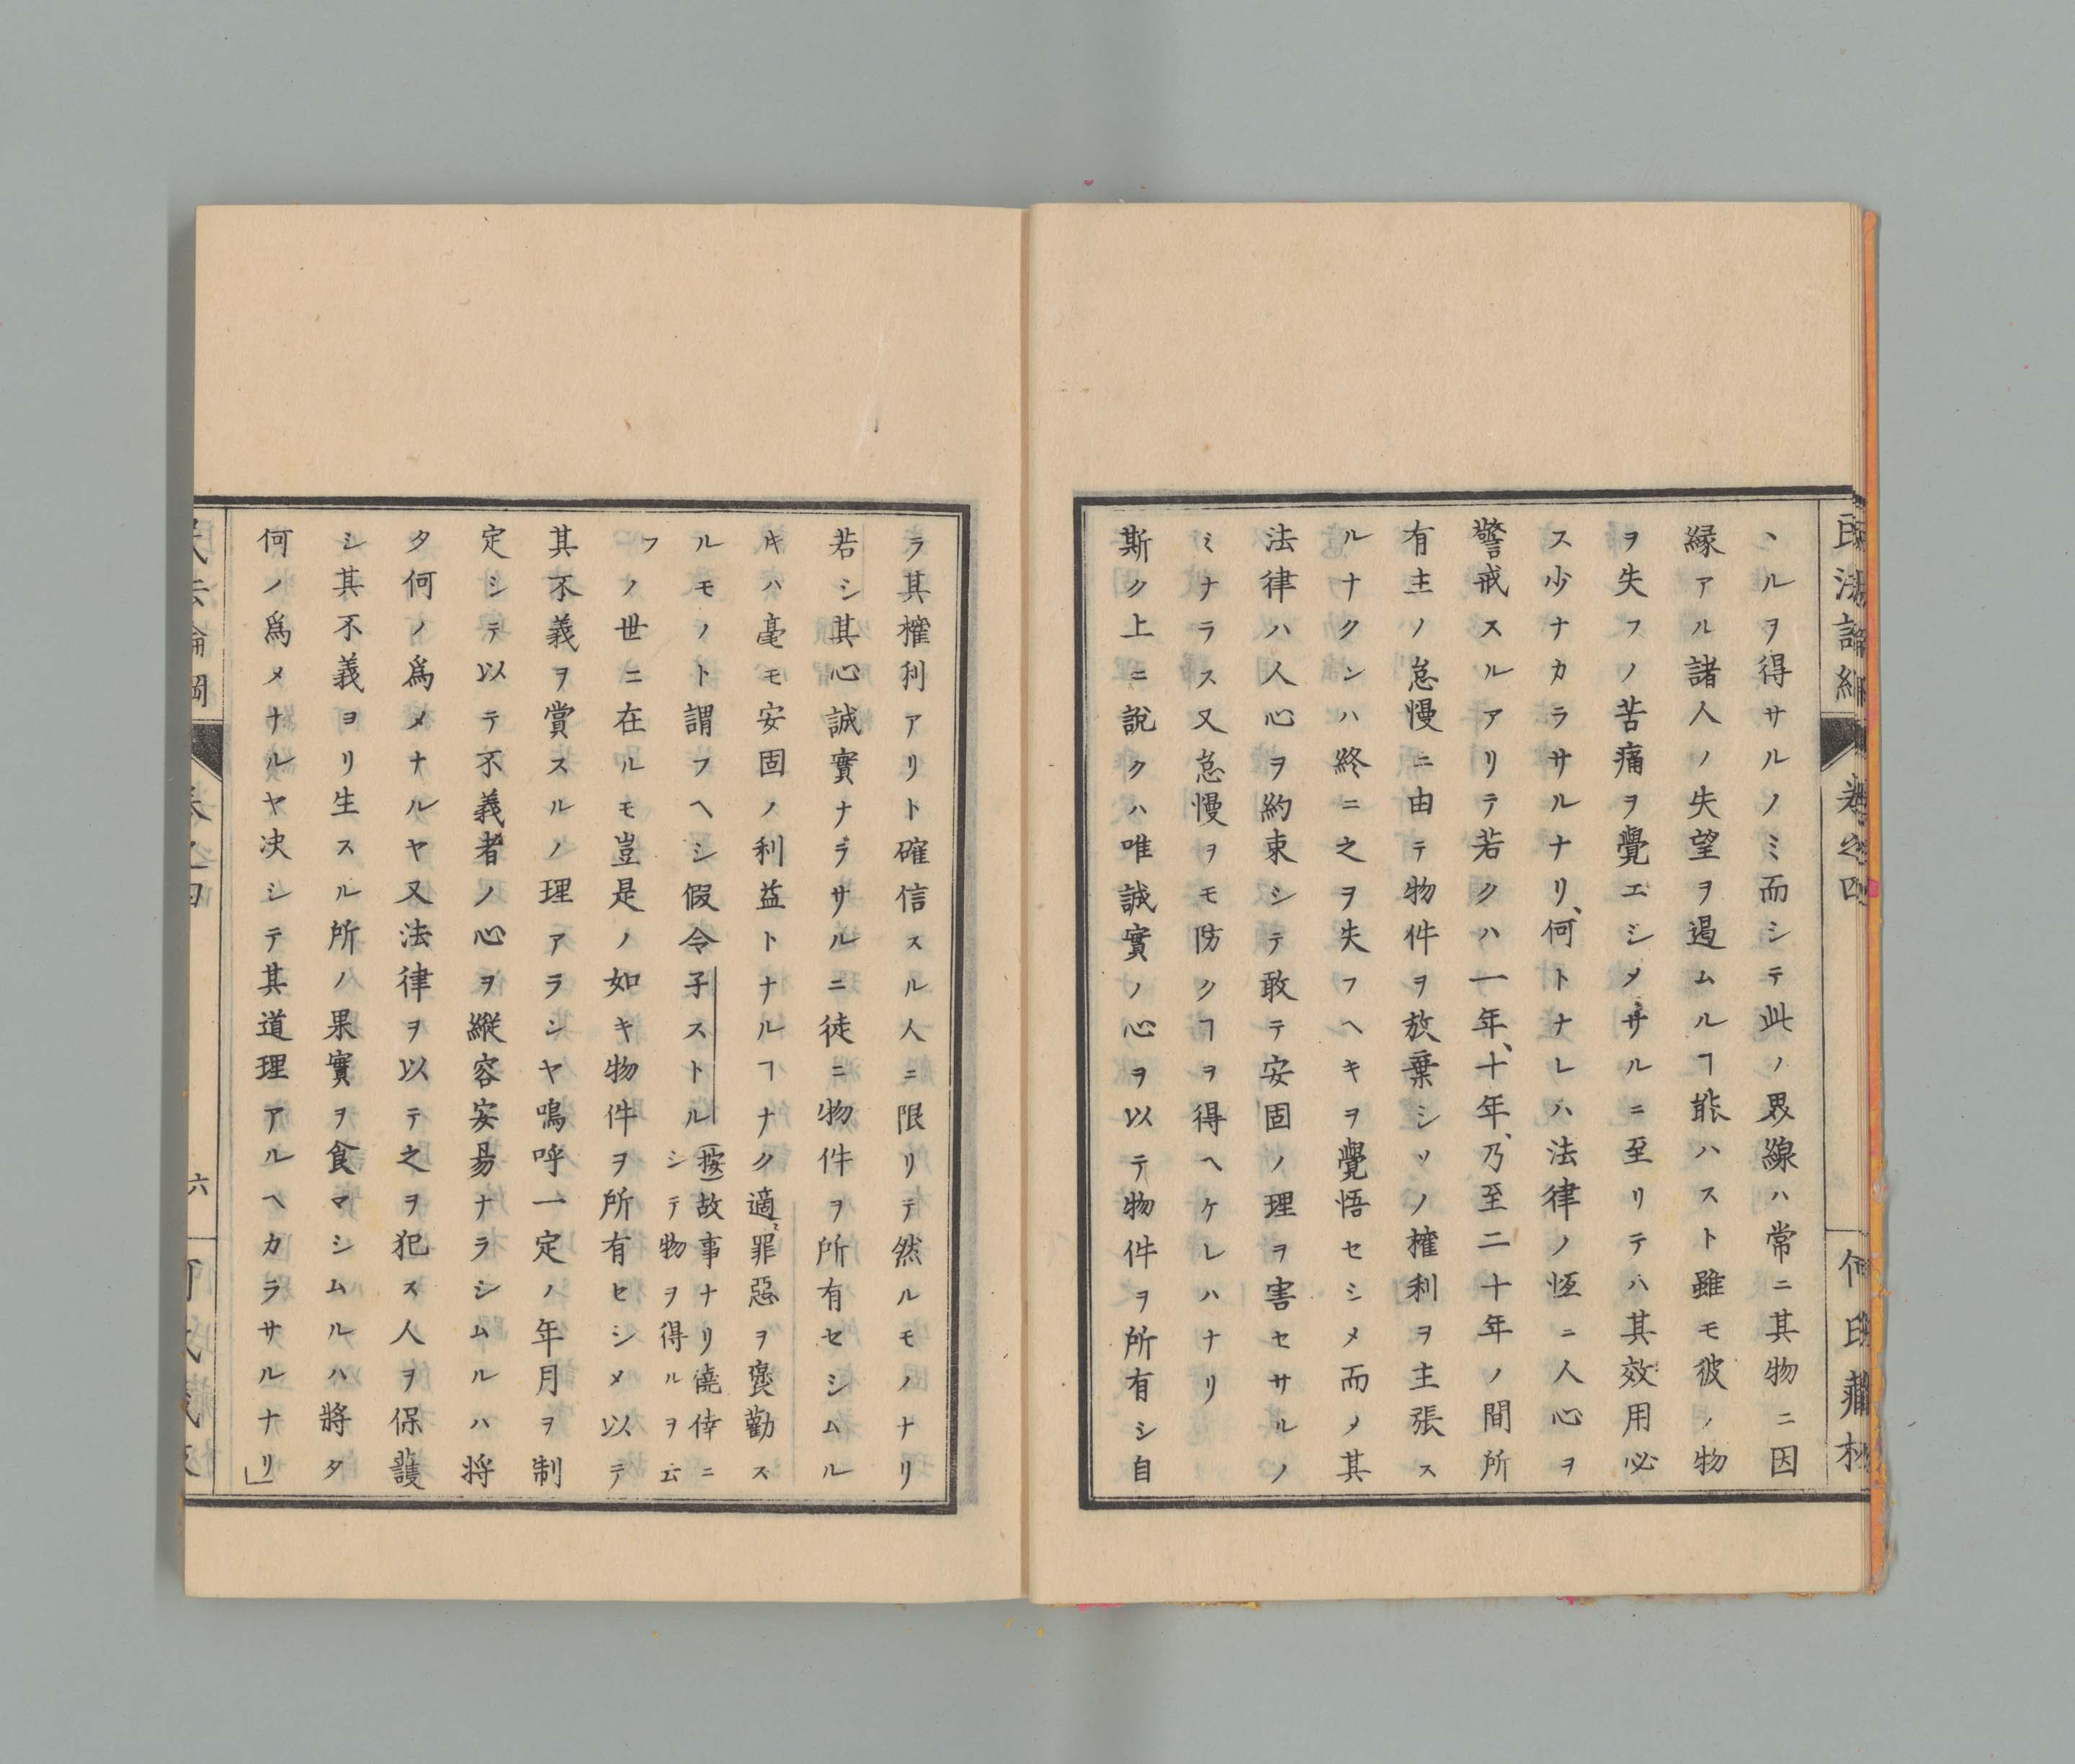 民法論綱
卷之四
何氏藏板
ヽルヲ得サルノミ而シテ此ノ界線ハ常ニ其物ニ因
縁アル諸人ノ失望ヲ遏ムルヿ能ハスト雖モ彼ノ物
ヲ失フノ苦痛ヲ覺エシメサルニ至リテハ其效用必
ス少ナカラサルナリ、何トナレハ法律ノ恆ニ人心ヲ
警戒スルアリテ若クハ一年、十年、乃至二十年ノ間所
有主ノ怠慢ニ由テ物件ヲ放棄シソノ權利ヲ主張ス
ルナクンハ終ニ之ヲ失フヘキヲ覺悟セシメ而メ其
法律ハ人心ヲ約束シテ敢テ安固ノ理ヲ害セサルノ
ミナラス又怠慢ヲモ防クヿヲ得ヘケレハナリ
斯ク上ニ說クハ唯誠實ノ心ヲ以テ物件ヲ所有シ自
ラ其權利アリト確信スル人ニ限リテ然ルモノナリ
若シ其心誠實ナラサルニ徒ニ物件ヲ所有セシムル
キハ毫モ安固ノ利益トナルヿナク適〻罪惡ヲ襃勸ス
ルモノト謂フヘシ假令子ストル(按)故事ナリ僥倖ニ
シテ物ヲ得ルヲ云
フノ世ニ在ルモ豈是ノ如キ物件ヲ所有セシメ以テ
其不義ヲ賞スルノ理アランヤ嗚呼一定ノ年月ヲ制
定シテ以テ不義者ノ心ヲ縱容安易ナラシムルハ将
タ何ノ爲メナルヤ又法律ヲ以テ之ヲ犯ス人ヲ保護
シ其不義ヨリ生スル所ノ果實ヲ食マシムルハ將タ
何ノ爲メナルヤ决シテ其道理アルヘカラサルナリ」
民法論綱
卷之四
六